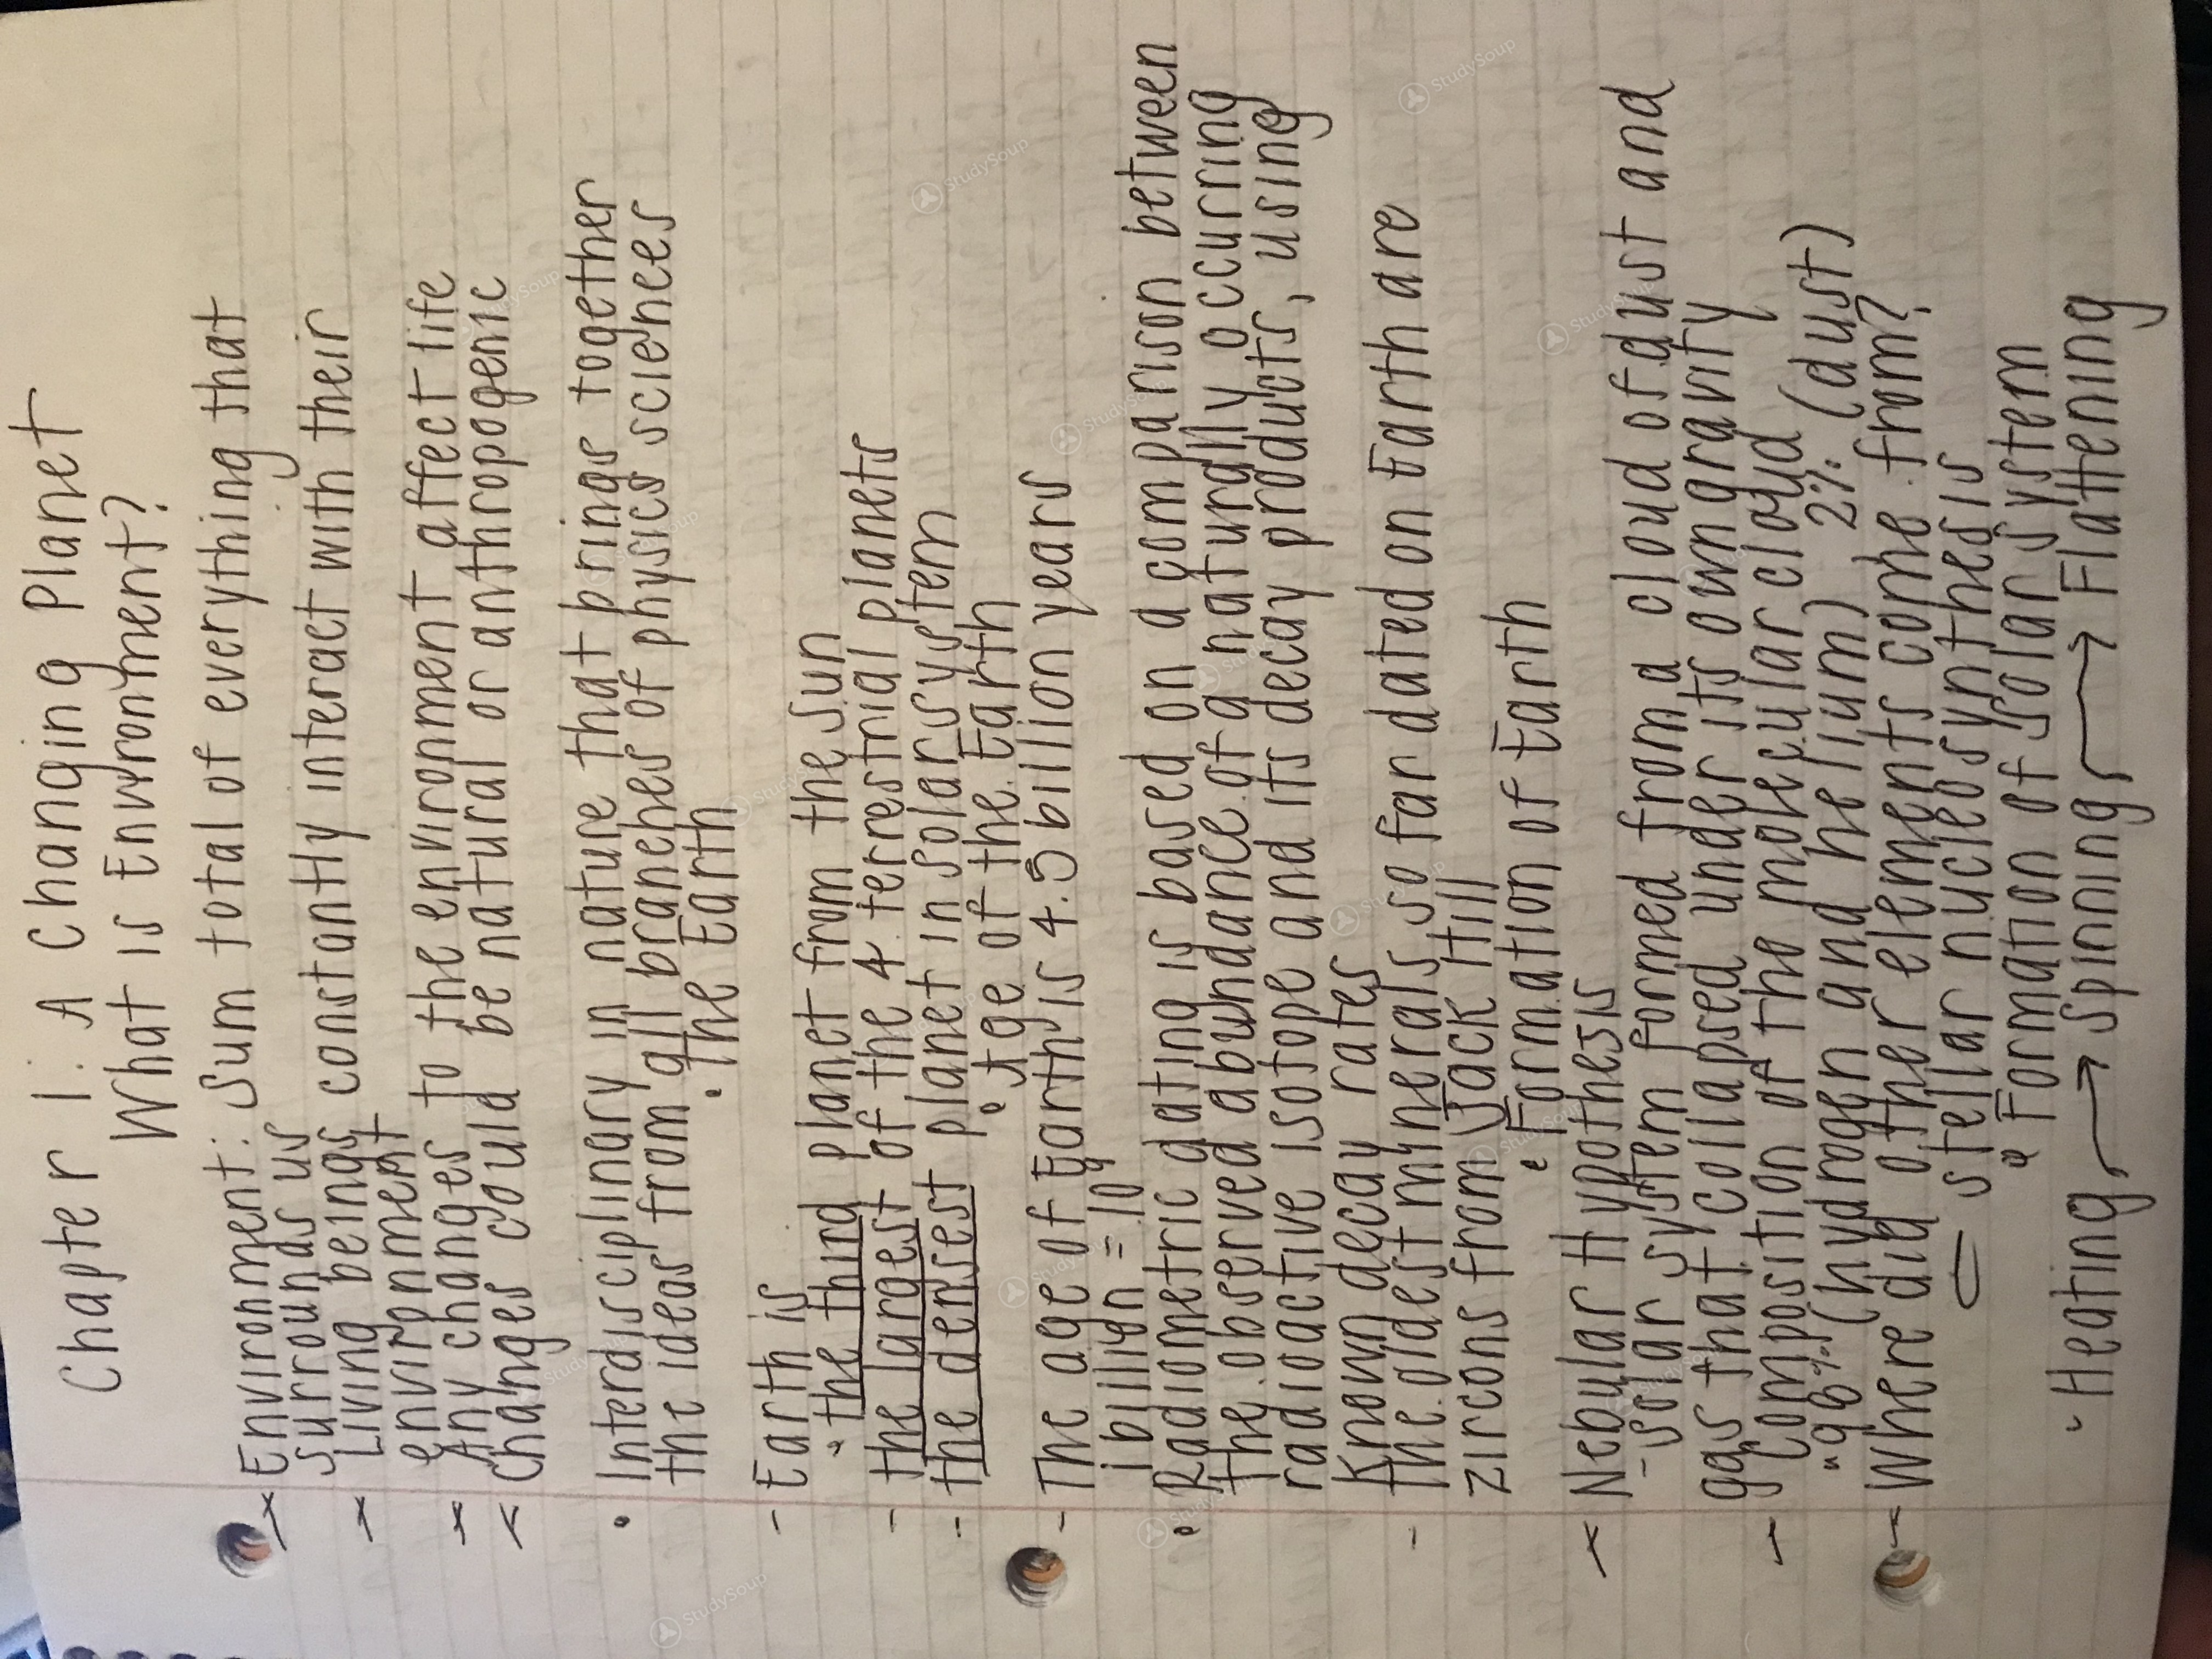 Chapter 1: A Changing Planet
What is Environment?
Environment: Sum total of everything that
surrounds us
Living beings constantly interact with their
environment
Any changes to the environment affect life
Changes could be natural or anthropogenic
• Interdisciplinary in nature that brings together
the ideas from all branches of physics sciences
• The Earth
- Earth is
• the third planet from the sun
- the largest of the 4 terrestrial planets
- the densest planet in solar system
• Age of the Earth
- The age of Earth is 4.5 billion years
1 billion = 10⁹
• Radiometric dating is based on a comparison between
the observed abundance of a naturally occurring
radioactive isotope and its decay products, using
known decay rates
- the oldest minerals so far dated on Earth are
zircons from Jack Hill
• Formation of Earth
Nebular Hypothesis
- solar system formed from a cloud of dust and
gas that collapsed under its own gravity
- Composition of the molecular cloud
"98% (hydrogen and helium) 2% (dust)
Where did other elements come from?
stellar nucleosynthesis
• Formation of solar system
• Heating → Spinning → Flattening
StudySoup